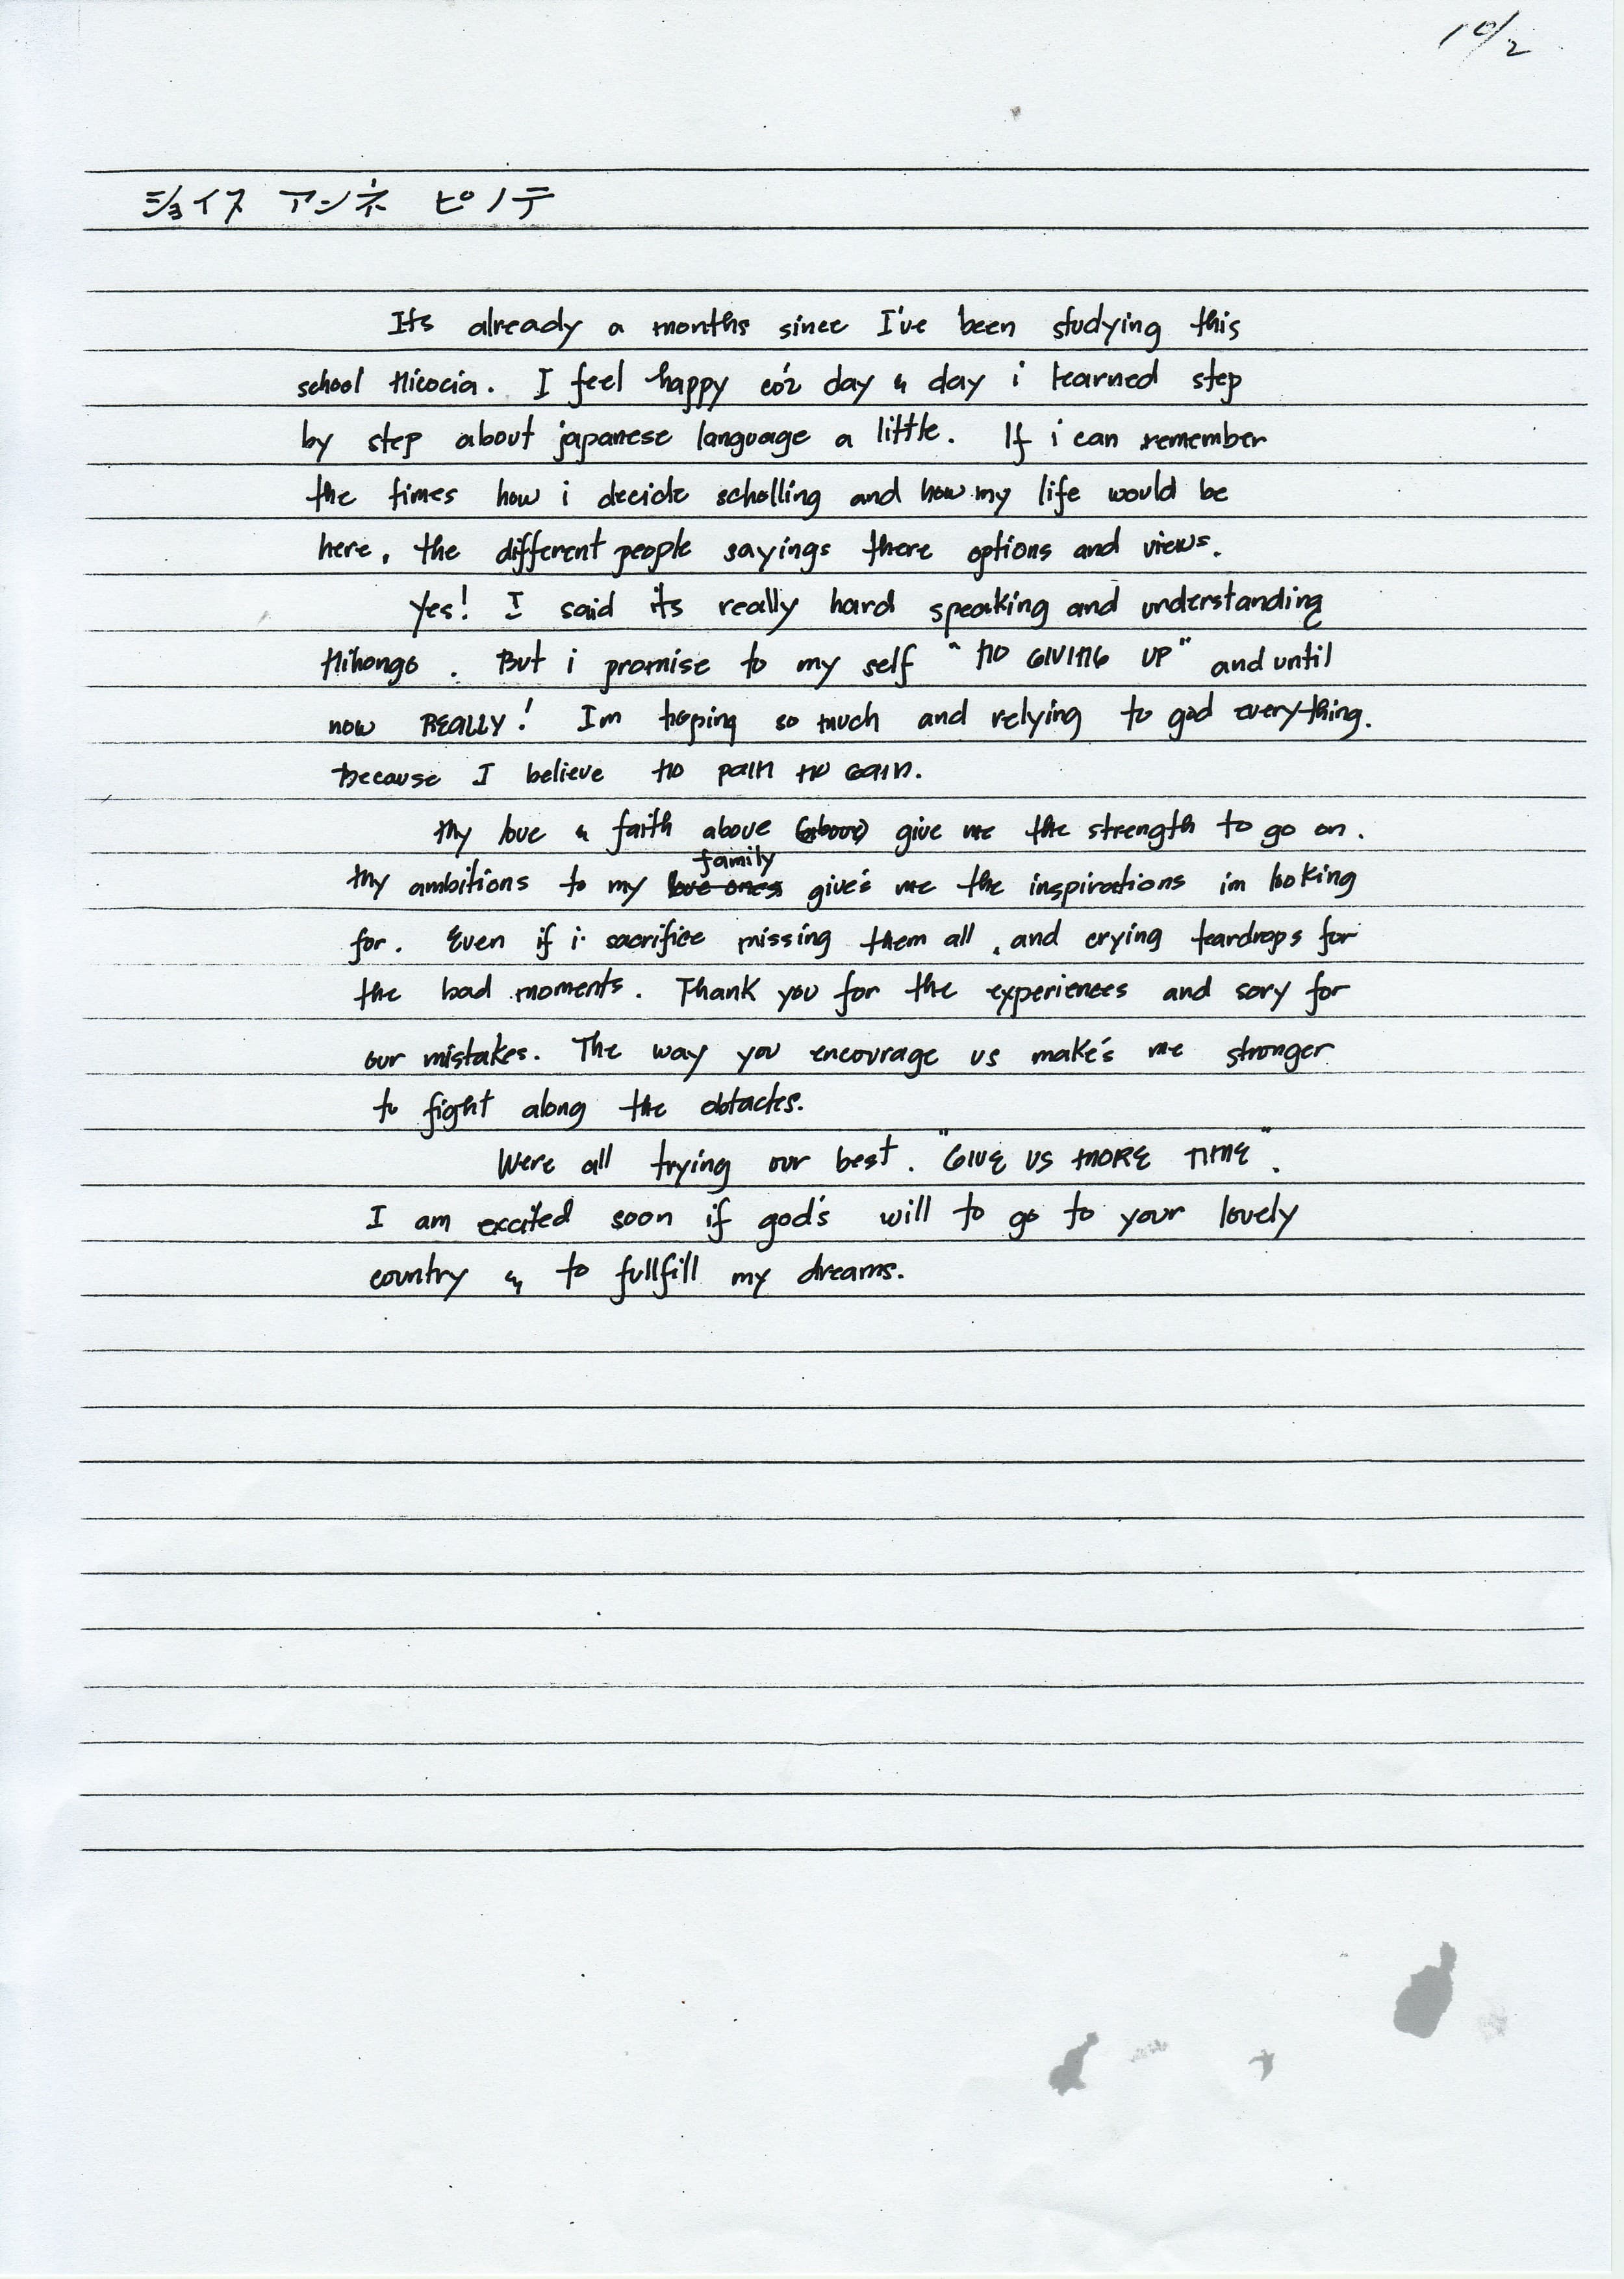 10/2
ジョイス アンネ ピノテ
Its already a months since I've been studying this
school Nicocia. I feel happy co'z day & day i learned step
by step about japanese language a little. If i can remember
the times how i decide scholling and how my life would be
here, the different people sayings there options and views.
Yes! I said its really hard speaking and understanding
Nihongo. But i promise to my self "NO GIVING UP" and until
now REALLY! Im hoping so much and relying to god everything.
Because I believe NO PAIN NO GAIN.
My love & faith above (above) give me the strength to go on.
family
My ambitions to my love ones give's me the inspirations im looking
for. Even if i sacrifice missing them all, and crying teardrops for
the bad moments. Thank you for the experiences and sory for
our mistakes. The way you encourage us make's me stronger
to fight along the obtacles.
Were all trying our best. "GIVE US MORE TIME".
I am excited soon if god's will to go to your lovely
country & to fullfill my dreams.